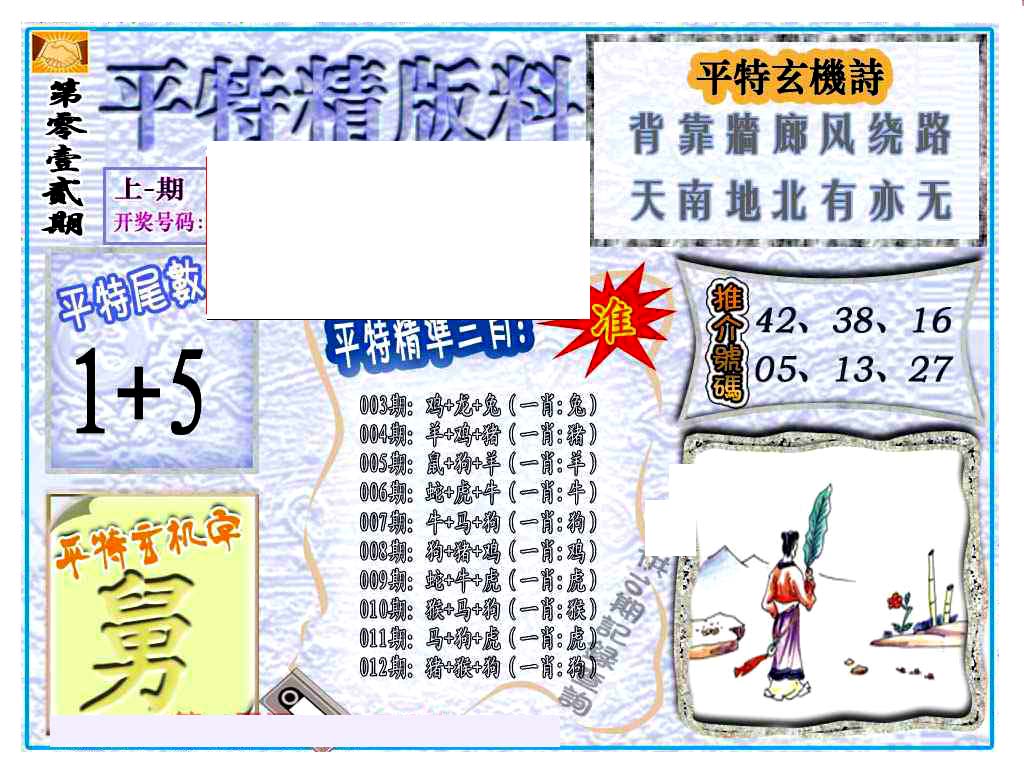 第零壹贰期
平特精版料
上-期
开奖号码:
平特玄機詩
背靠牆廊风绕路
天南地北有亦无
平特尾數
1+5
平特精準三肖!
准
推介號碼
42、38、16
05、13、27
003期: 鸡+龙+兔 (一肖:兔)
004期: 羊+鸡+猪 (一肖:猪)
005期: 鼠+狗+羊 (一肖:羊)
006期: 蛇+虎+牛 (一肖:牛)
007期: 牛+马+狗 (一肖:狗)
008期: 狗+猪+鸡 (一肖:鸡)
009期: 蛇+牛+虎 (一肖:虎)
010期: 猴+马+狗 (一肖:猴)
011期: 马+狗+虎 (一肖:虎)
012期: 猪+猴+狗 (一肖:狗)
平特玄机字
舅
供10期記錄查詢